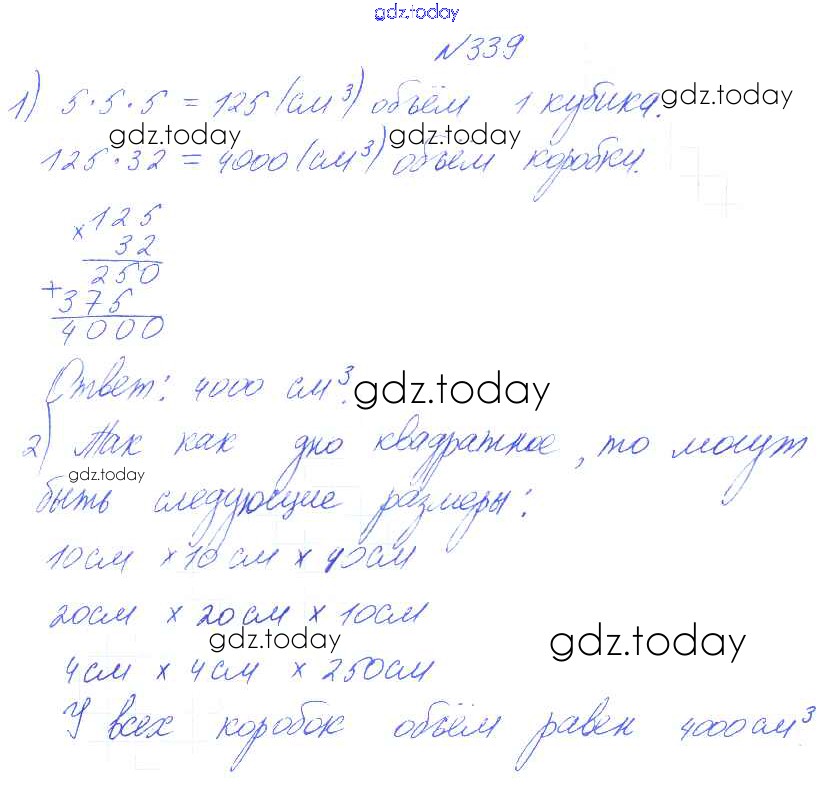 gdz.today
№339
1) 5·5·5 = 125 (см³) объём 1 кубика. gdz.today
gdz.today gdz.today
125·32 = 4000 (см³) объём коробки.
× 125
32
250
+ 375
4000
Ответ: 4000 см³. gdz.today
2) Так как дно квадратное, то могут
gdz.today
быть следующие размеры:
10см × 10см × 40см
20см × 20см × 10см
gdz.today gdz.today
4см × 4см × 250см
У всех коробок объём равен 4000см³